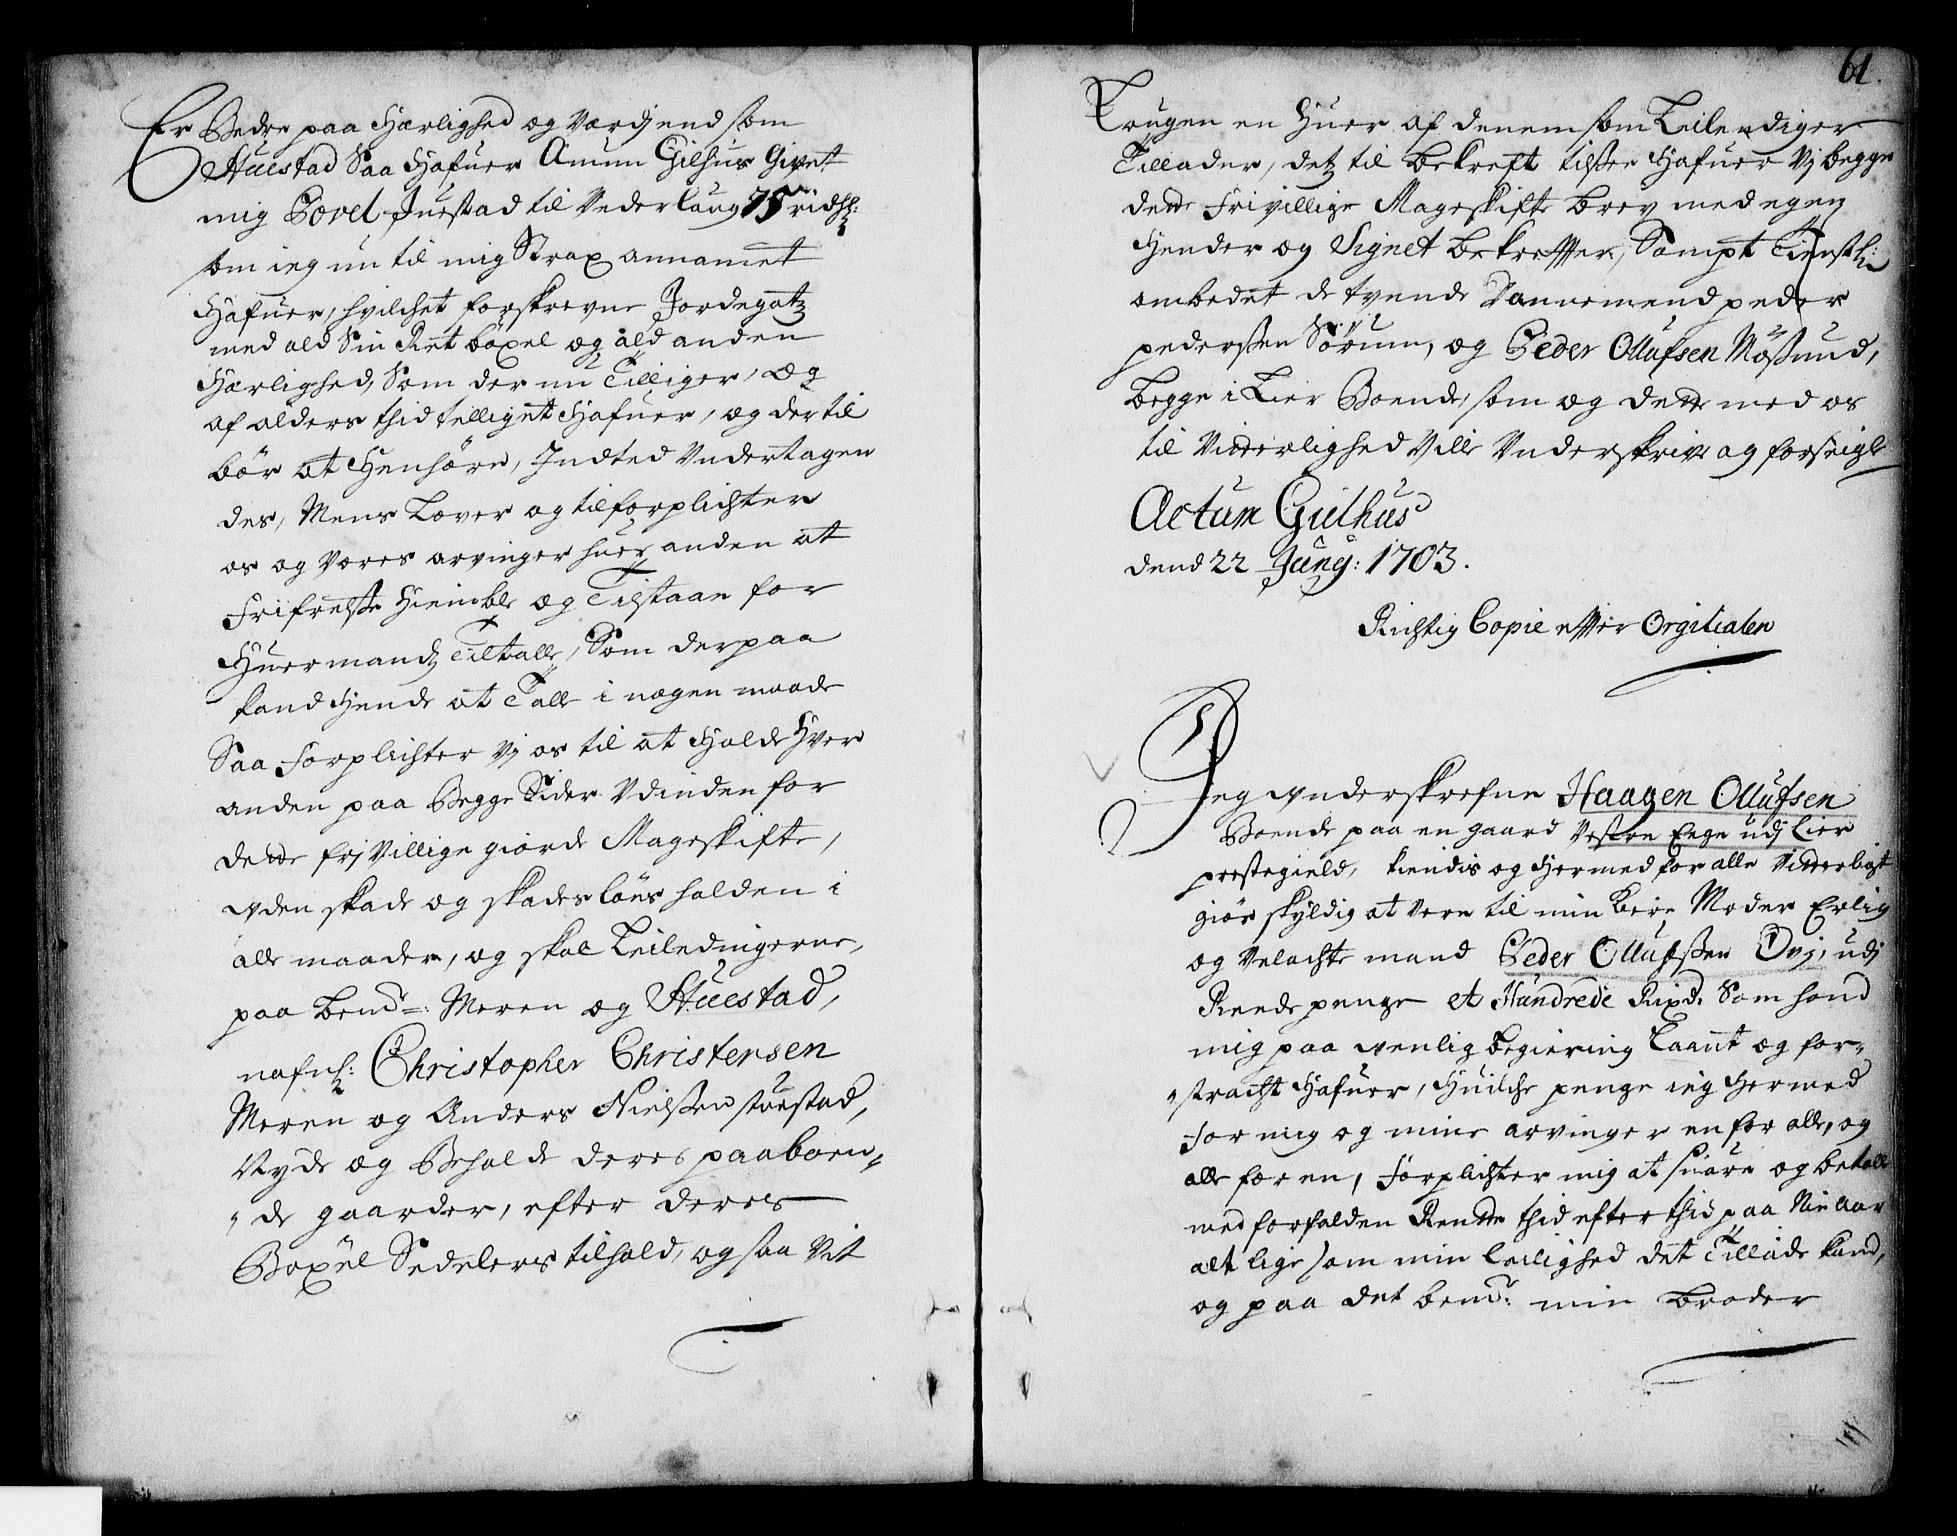 Er Bedre paa Herlighed og Værdj end som
Stuestad Saa Hafuer Amun Gilhus Givet
mig Povel Juestad til Vederlaug 75 ridsl:
som ieg nu til mig Strax annamet
Hafuer, hvilchet forskrevne Jordegotz
med ald Sin Ret böxel og ald anden
Herlighed, Som der nu Tilliger, og
af alders thid tilliget Hafuer, og der til
bör at Henhöre, Indted Vndertagen
des, Mens Lover og tilforplichter
os og Vores arvinger huer anden at
Frifrelse Hiemble og Tilstaae for
Huer mandz Tiltalle, Som derpaa
kand Hende at Talle i nogen maade
Saa Forplichter Vj os til at Holde Hver
anden paa Begge Sider Vdinden for
dette frj Villige giorde Mageskifte,
uden skade og skadeslöes holden i
alle maader, og skal Leiledingerne,
paa bemte: Meren og Stuestad,
nafnl: Christopher Christensen
Meren og Anders Nielsen stuestad,
Nyde og Beholde deres paaboen-
de gaarder, efter deres
Boxel Sedelers tilhold, og saa Vit
61.
Lougen en Huer af denem som Leilendiger
Tillader, detz til bekreft tilsee Hafuer Vj begge
dette Frivillige Mageskifte brev med egen
Hender og Signet bekreffter, Sampt Tienstl:
ombedet de tvende Dannemend peder
pedersen Sörum, og Peder Ollufsen Mösund,
begge i Lier Boende, som og dette med os
til Vitterlighed Ville Vnderskrive og forseigle
Actum Gielhus
dend 22 Junij: 1703.
Richtig Copie effter Orgilialen
Jeg underskrefne Haagen Ollufsen
Boende paa en gaard Vestre Ege udj Lier
prestegield, kiendis og Hermed for alle Vitterligt
giör skyldig at Vere til min kiere Moder Erlig
og Velachte mand Peder Ollufsen Ovj, udj
Reede penge et Hundrede Rixd. Som hand
mig paa venlig begiering Laant og for-
stracht Hafuer, Huilche penge ieg Hermed
for mig og mine arvinger en for alle, og
alle for en, Forplichter mig at suare og betalle
med forfalden Rentte thid efter thid paa Nie aar
alt lige som min leilighed det Tillade kand,
og paa det bemte: min broder